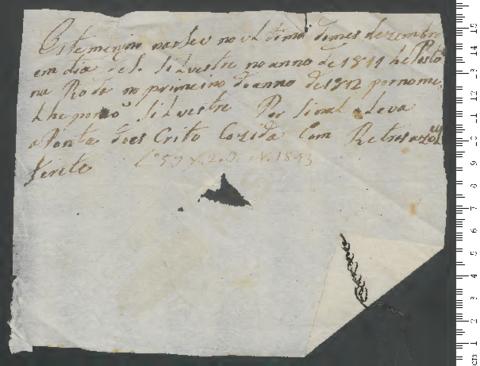 Este menino nasseo no vltimo dimes dezembro
em dia de S. Silvestre no anno de 1811 he Posto
na Roda no primeiro dianno de 1812 por nome
lhe porão Silvestre Por Sinal aleva
a Ponta does Crito Cozida Com Retros azul
ferete
Lº 59 N. 1893